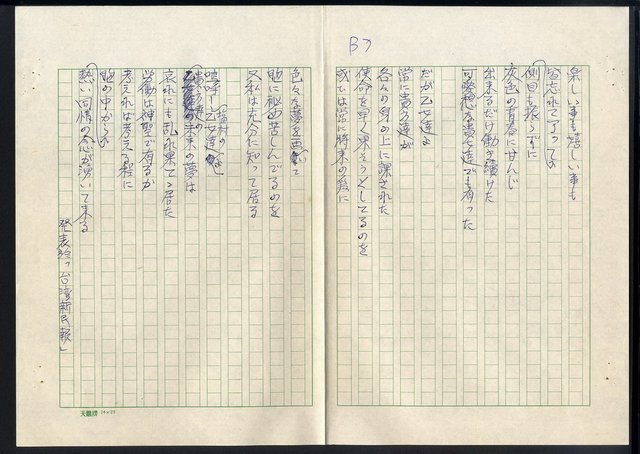 B7
楽しい事も嬉しい事も
皆忘れて了つての
側目も振らずに
灰色の青春に甘んじ
出来るだけ働き続けた
可憐な乙女達でも有った
だが乙女達よ
常に貴方達が
各々の身の上に課された
使命を早く果そうとしてるのを
或ひは常に将来の為に
色々な夢を画いて
胸に秘め苦しんでるのを
又私は充分に知って居る
嗚呼乙女達
農村の
貴方達の
未来の夢は
哀れにも乱れ果てゝ居た
労働は神聖で有るが
考えれば考える程に
胸の中から
熱い同情の念が湧いて来る
発表於「台湾新民報」
天龍牌 24×25